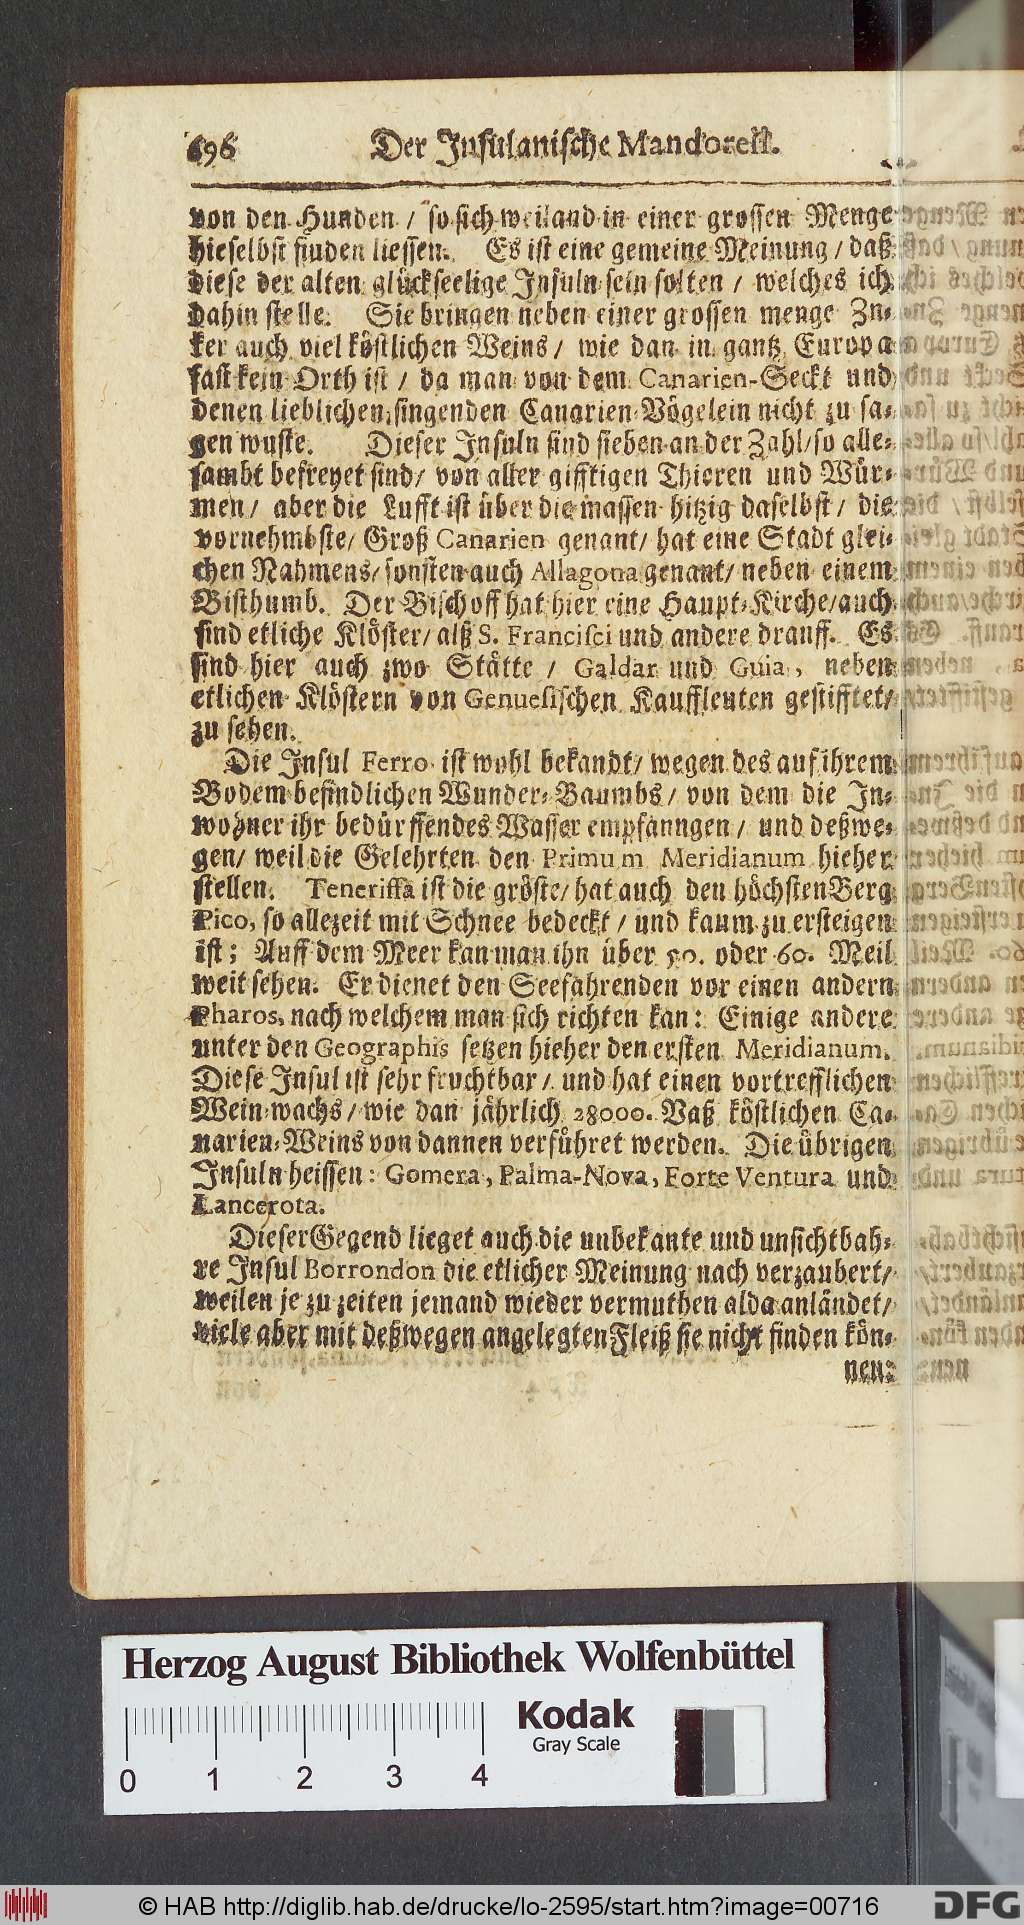 696 Der Insulanische Mandorell.
von den Hunden / so sich weiland in einer grossen Menge
hieselbst finden liessen. Es ist eine gemeine Meinung / daß
diese der alten glückseelige Insuln sein solten / welches ich
dahin stelle. Sie bringen neben einer grossen menge Zu-
ker auch viel köstlichen Weins / wie dan in gantz Europa
fast kein Orth ist / da man von dem Canarien-Seckt und
denen lieblichen singenden Canarien-Vögelein nicht zu sa-
gen wuste. Dieser Insuln sind sieben an der Zahl / so alle-
sambt befreyet sind / von aller gifftigen Thieren und Wür-
men / aber die Lufft ist über die massen hitzig daselbst / die
vornehmbste / Groß Canarien genant / hat eine Stadt glei-
chen Nahmens / sonsten auch Allagona genant / neben einem
Bisthumb. Der Bischoff hat hier eine Haupt-Kirche / auch
sind etliche Klöster / alß S. Francisci und andere drauff. Es
sind hier auch zwo Stätte / Galdar und Guia, neben
etlichen Klöstern von Genuesischen Kauffleuten gestifftet /
zu sehen.
Die Insul Ferro ist wohl bekandt / wegen des auf ihrem
Bodem befindlichen Wunder-Baumbs / von dem die In-
wohner ihr bedürffendes Wasser empfanngen / und deßwe-
gen / weil die Gelehrten den Primum Meridianum hieher
stellen. Teneriffa ist die gröste / hat auch den höchsten Berg
Pico, so allezeit mit Schnee bedeckt / und kaum zu ersteigen
ist; Auff dem Meer kan man ihn über 50. oder 60. Meil
weit sehen. Er dienet den Seefahrenden vor einen andern
Pharos, nach welchem man sich richten kan: Einige andere
unter den Geographis setzen hieher den ersten Meridianum.
Diese Insul ist sehr fruchtbar / und hat einen vortrefflichen
Wein-wachs / wie dan jährlich 28000. Vaß köstlichen Ca-
narien-Weins von dannen verführet werden. Die übrigen
Insuln heissen: Gomera, Palma-Nova, Forte Ventura und
Lancerota.
Dieser Gegend lieget auch die unbekante und unsichtbah-
re Insul Borrondon die etlicher Meinung nach verzaubert /
weilen je zu zeiten jemand wieder vermuthen alda anländet /
viele aber mit deßwegen angelegten Fleiß sie nicht finden kön-
nen:
Herzog August Bibliothek Wolfenbüttel
Kodak
Gray Scale
0 1 2 3 4
© HAB http://diglib.hab.de/drucke/lo-2595/start.htm?image=00716
DFG